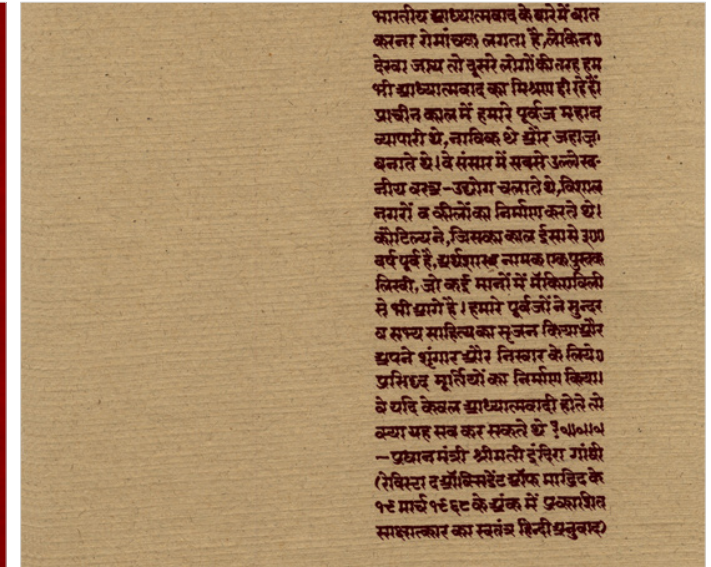 भारतीय आध्यात्मवाद के बारे में बात
करना रोमांचक लगता है, लेकिन
देखा जाय तो दूसरे लोगों की तरह हम
भी आध्यात्मवाद का मिश्रण ही रहे हैं।
प्राचीन काल में हमारे पूर्वज महान
व्यापारी थे, नाविक थे और जहाज़
बनाते थे। वे संसार में सबसे उल्लेख-
नीय वस्त्र-उद्योग चलाते थे, विशाल
नगरों व कीलों का निर्माण करते थे।
कौटिल्य ने, जिसका काल ईसा से ३००
वर्ष पूर्व है, अर्थशास्त्र नामक एक पुस्तक
लिखी, जो कई मानों में मॅकियाविली
से भी आगे है। हमारे पूर्वजों ने सुन्दर
व सभ्य साहित्य का सृजन किया और
अपने शृंगार और निखार के लिये
प्रसिध्द मूर्तियों का निर्माण किया।
वे यदि केवल आध्यात्मवादी होते तो
क्या यह सब कर सकते थे ?
—प्रधान मंत्री श्रीमती इंदिरा गांधी
(रेविस्टा द ऑक्सिडेंट ऑफ माड्रिद के
१९ मार्च १९६८ के अंक में प्रकाशित
साक्षात्कार का स्वतंत्र हिन्दी अनुवाद)